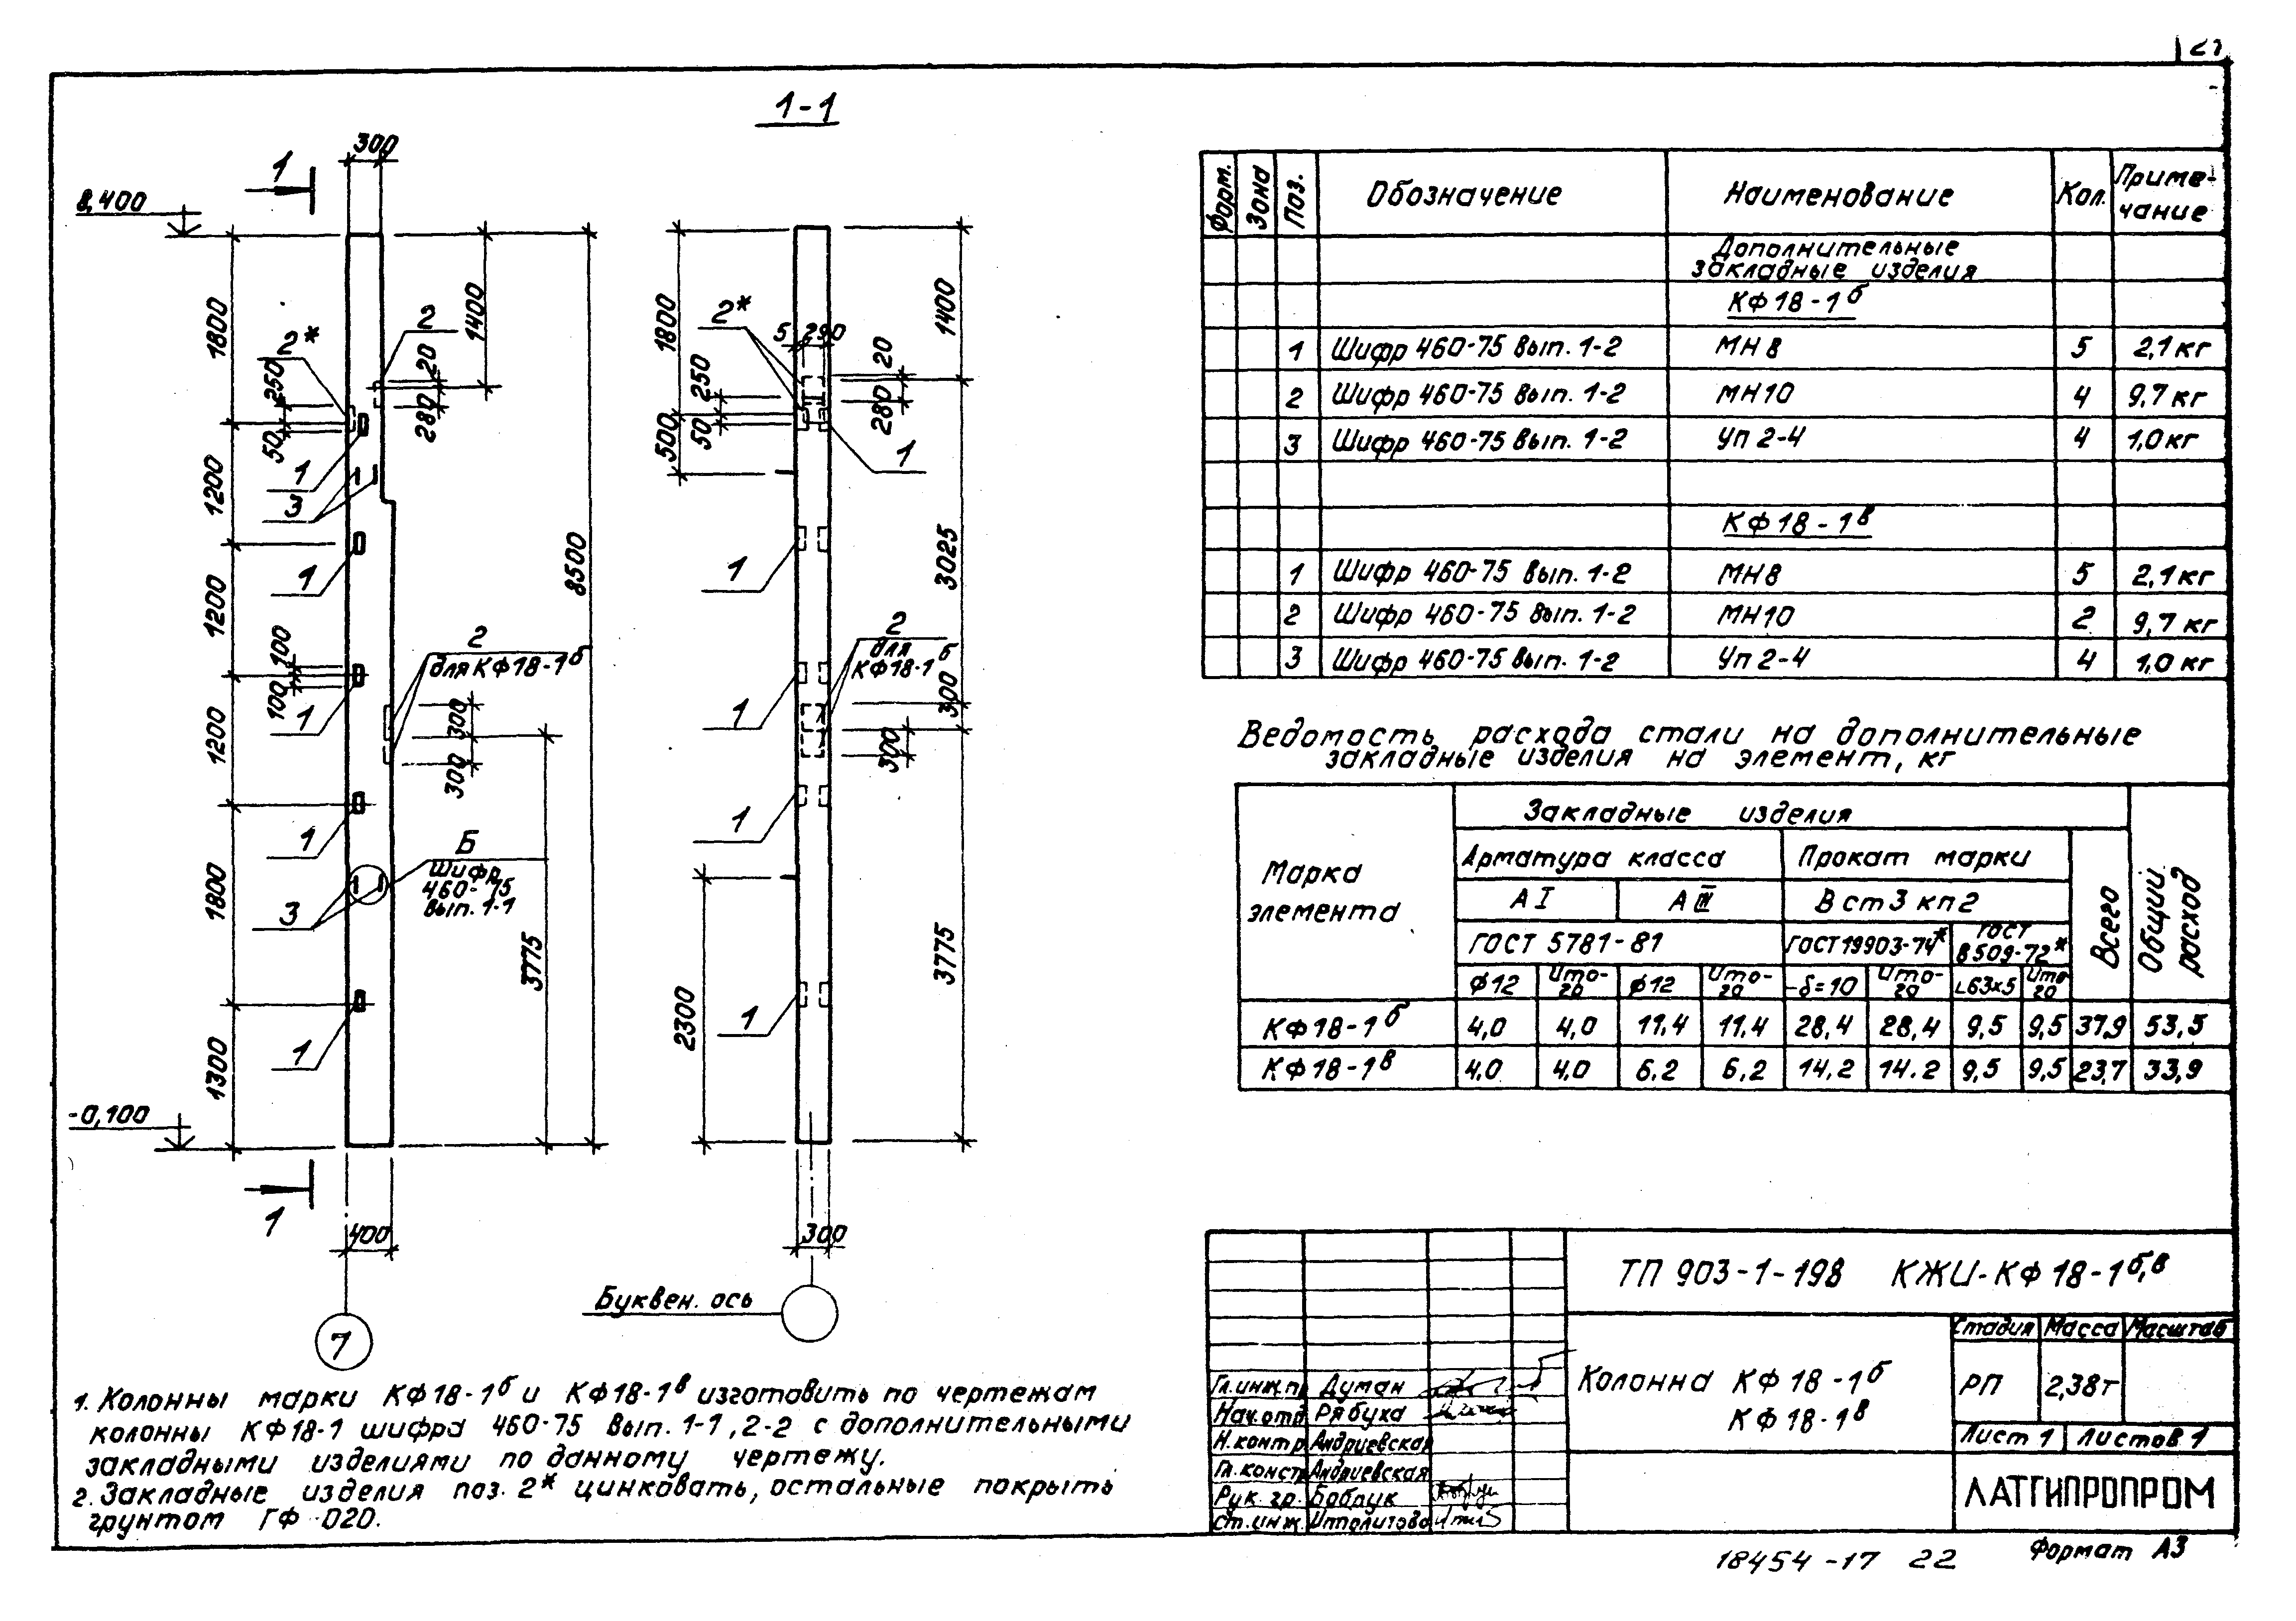 1-1
300
1
8,400
1800
1200
1200
1200
1800
1300
2*
250
50
1
3
1
100
100
1
1
3
1
2
20
280
1400
8500
2
для КФ18-1б
300
300
Б
шифр
460-75
вып. 1-1
3775
-0,100
1
400
7
1800
500
2*
250
50
5 290
20
280
1400
1
1
3025
2
для
КФ18-1б
300
300
1
1
3775
2300
1
300
Буквен. ось
1. Колонны марки КФ18-1б и КФ18-1в изготовить по чертежам
колонны КФ18-1 шифра 460-75 вып. 1-1, 2-2 с дополнительными
закладными изделиями по данному чертежу.
2. Закладные изделия поз. 2* цинковать, остальные покрыть
грунтом ГФ-020.
Форм. Зона Поз. Обозначение Наименование Кол. Приме-
чание
Дополнительные
закладные изделия
КФ18-1б
1 Шифр 460-75 вып. 1-2 МН8 5 2,1 кг
2 Шифр 460-75 вып. 1-2 МН10 4 9,7 кг
3 Шифр 460-75 вып. 1-2 УП2-4 4 1,0 кг
КФ18-1в
1 Шифр 460-75 вып. 1-2 МН8 5 2,1 кг
2 Шифр 460-75 вып. 1-2 МН10 2 9,7 кг
3 Шифр 460-75 вып. 1-2 УП2-4 4 1,0 кг
Ведомость расхода стали на дополнительные
закладные изделия на элемент, кг
Марка
элемента
Закладные изделия
Общий
расход
Арматура класса Прокат марки
Всего
АI АIII В ст3 кп2
ГОСТ 5781-81 ГОСТ 19903-74* ГОСТ
8509-72*
ф12 Ито-
го ф12 Ито-
го -δ=10 Ито-
го L63х5 Ито
го
КФ18-1б 4,0 4,0 11,4 11,4 28,4 28,4 9,5 9,5 37,9 53,5
КФ18-1в 4,0 4,0 6,2 6,2 14,2 14.2 9,5 9,5 23,7 33,9
ТП 903-1-198 КЖИ-КФ18-1б,в
Колонна КФ18-1б
КФ18-1в
Стадия Масса Масштаб
РП 2,38т
Лист 1 Листов 1
ЛАТГИПРОПРОМ
Гл.инж.п Думан
Нач.отд Рябуха
Н.контр Андриевская
Гл.констр Андриевская
Рук. гр. Бобрук
Ст.инж. Ипполитова
18454-17 22
Формат А3